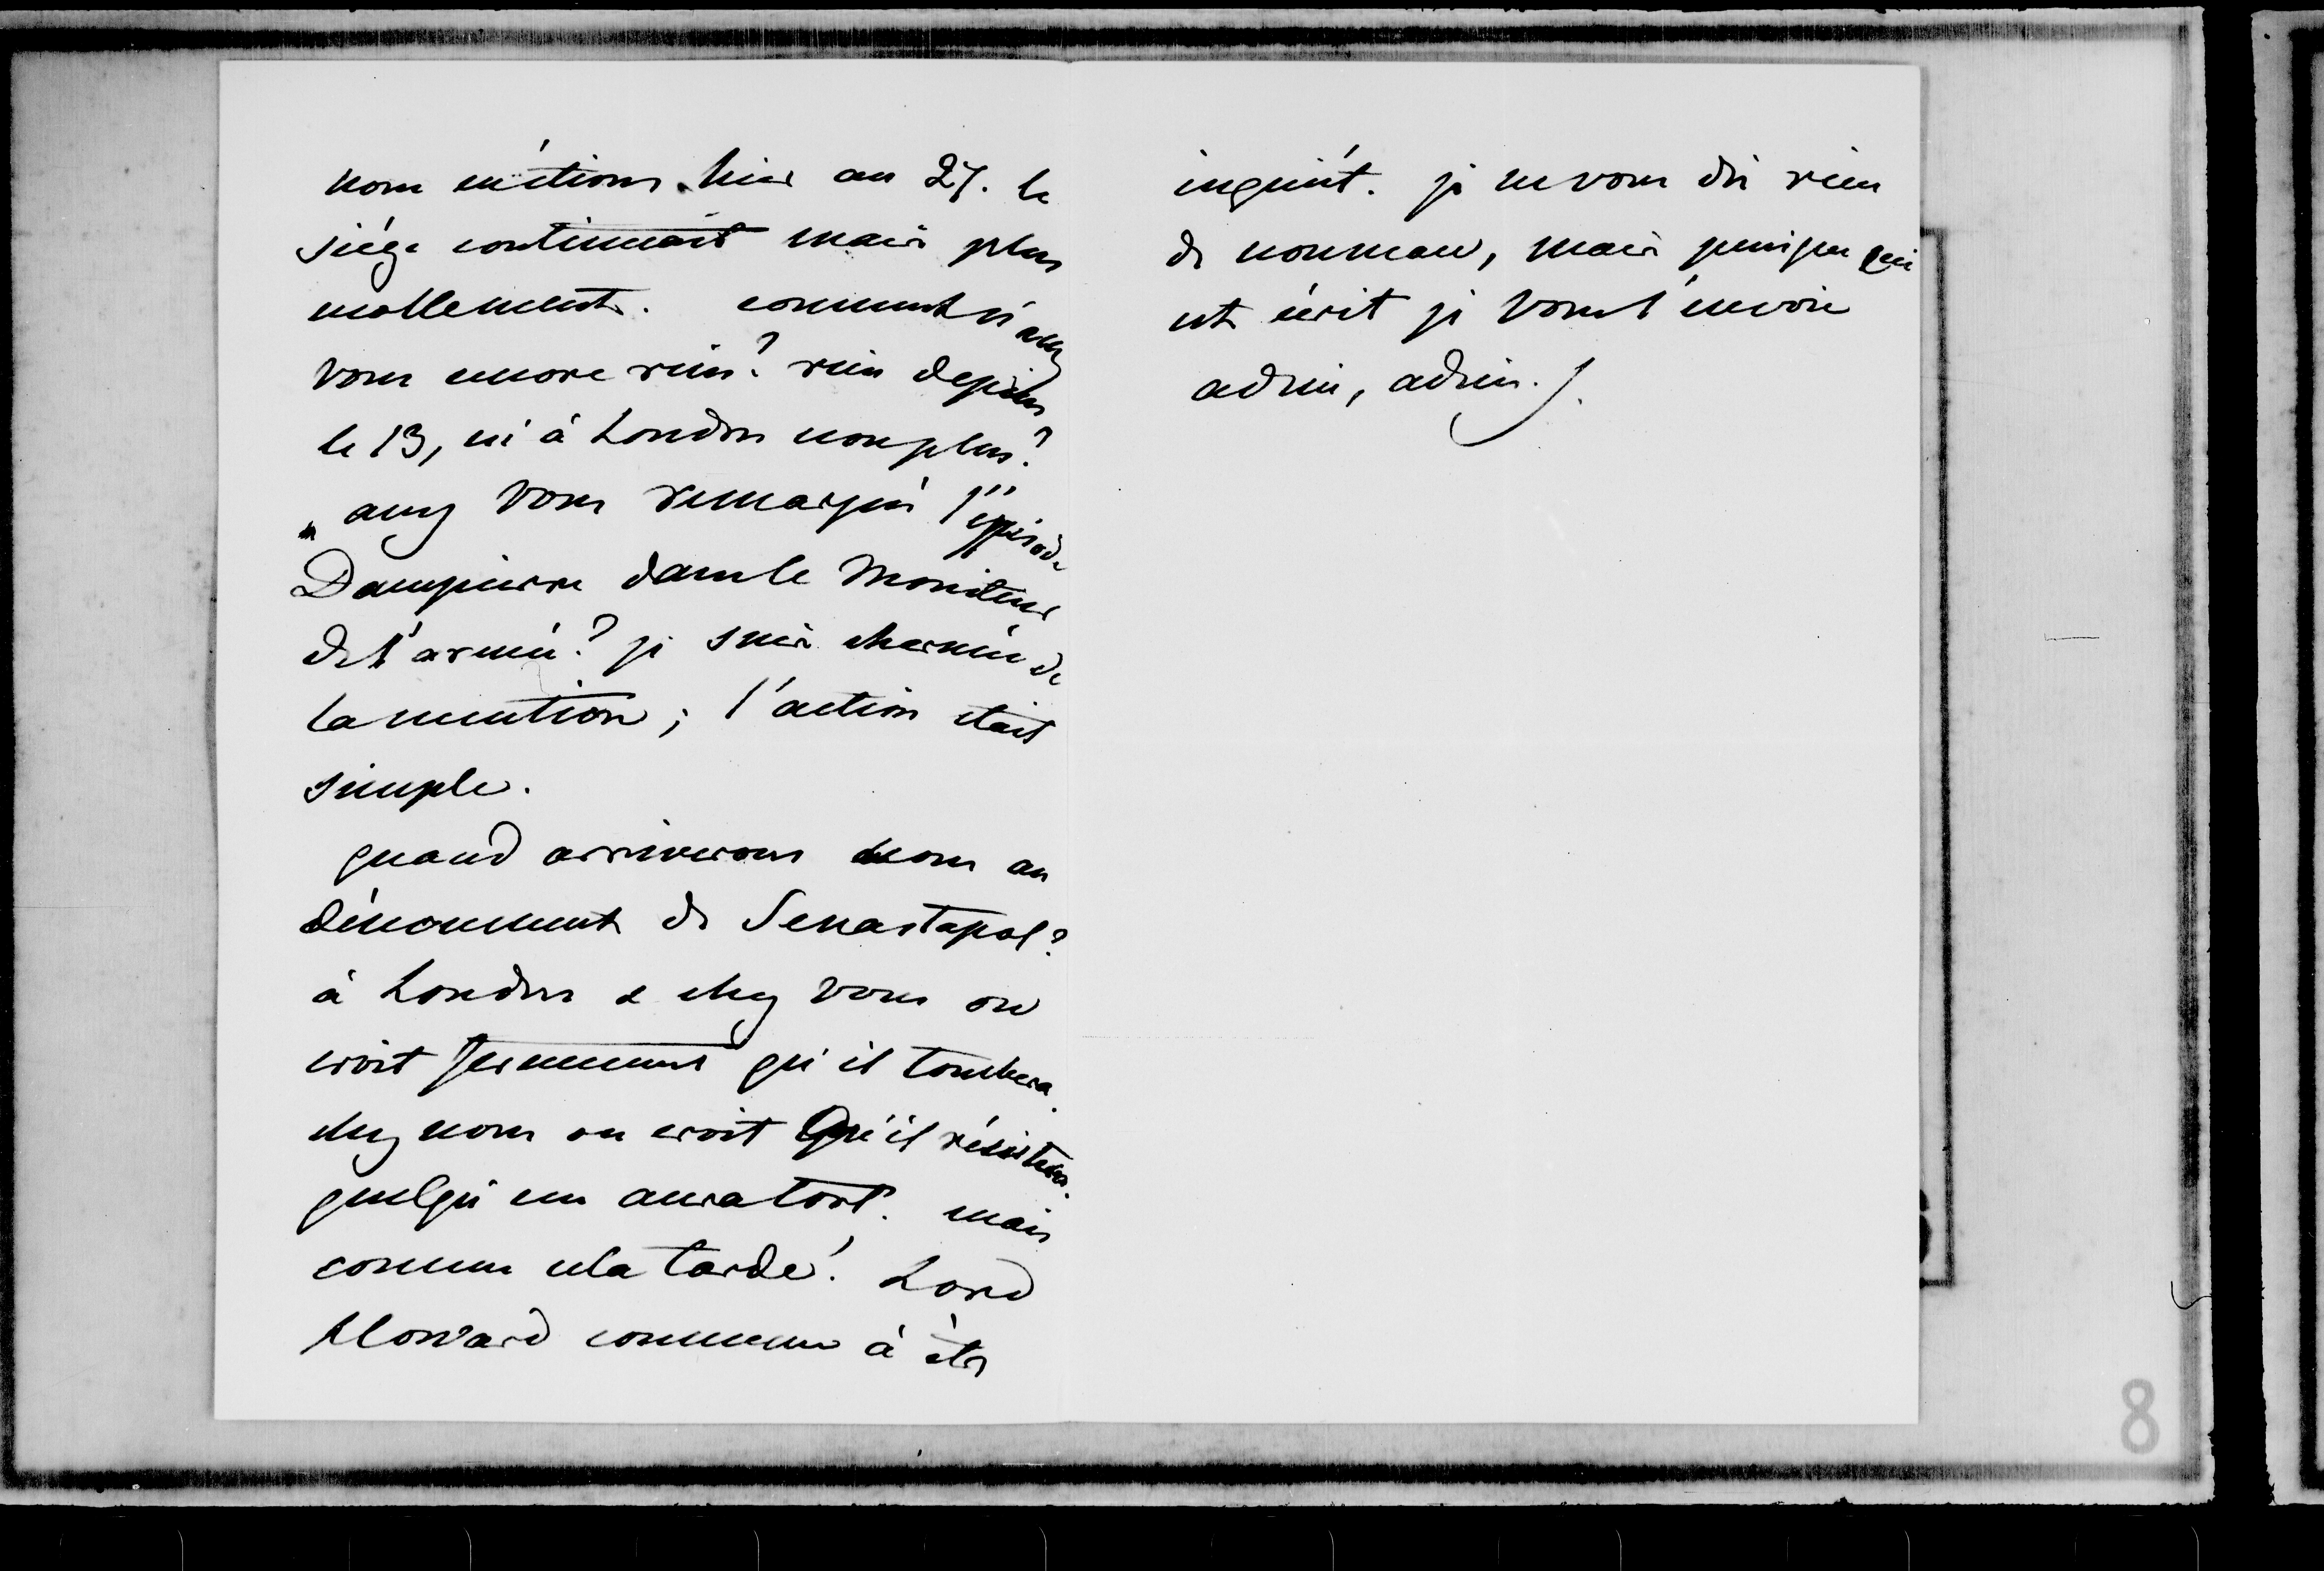 nous en étions hier au 27. le
siége continuait mais plus
mollement. comment n'avez
vous encore rien? rien depuis
le 13, ni à Londres non plus?
avez vous remarqué l'épisode
Dampierre dans le Moniteur
de l'armée? je suis charmée de
la mention; l'action était
simple.
quand arriverons nous au
dénouement de Sevastopol?
à Londres & chez vous on
croit fermement qu'il tombera.
chez nous on croit Qu'il résistera.
quelqu'un aura tort. mais
comme cela tarde! Lord
Howard commence à être
inquiét. je ne vous dis rien
de nouveau, mais puisque ceci
est écrit je vous l'envoie
adieu, adieu.
8